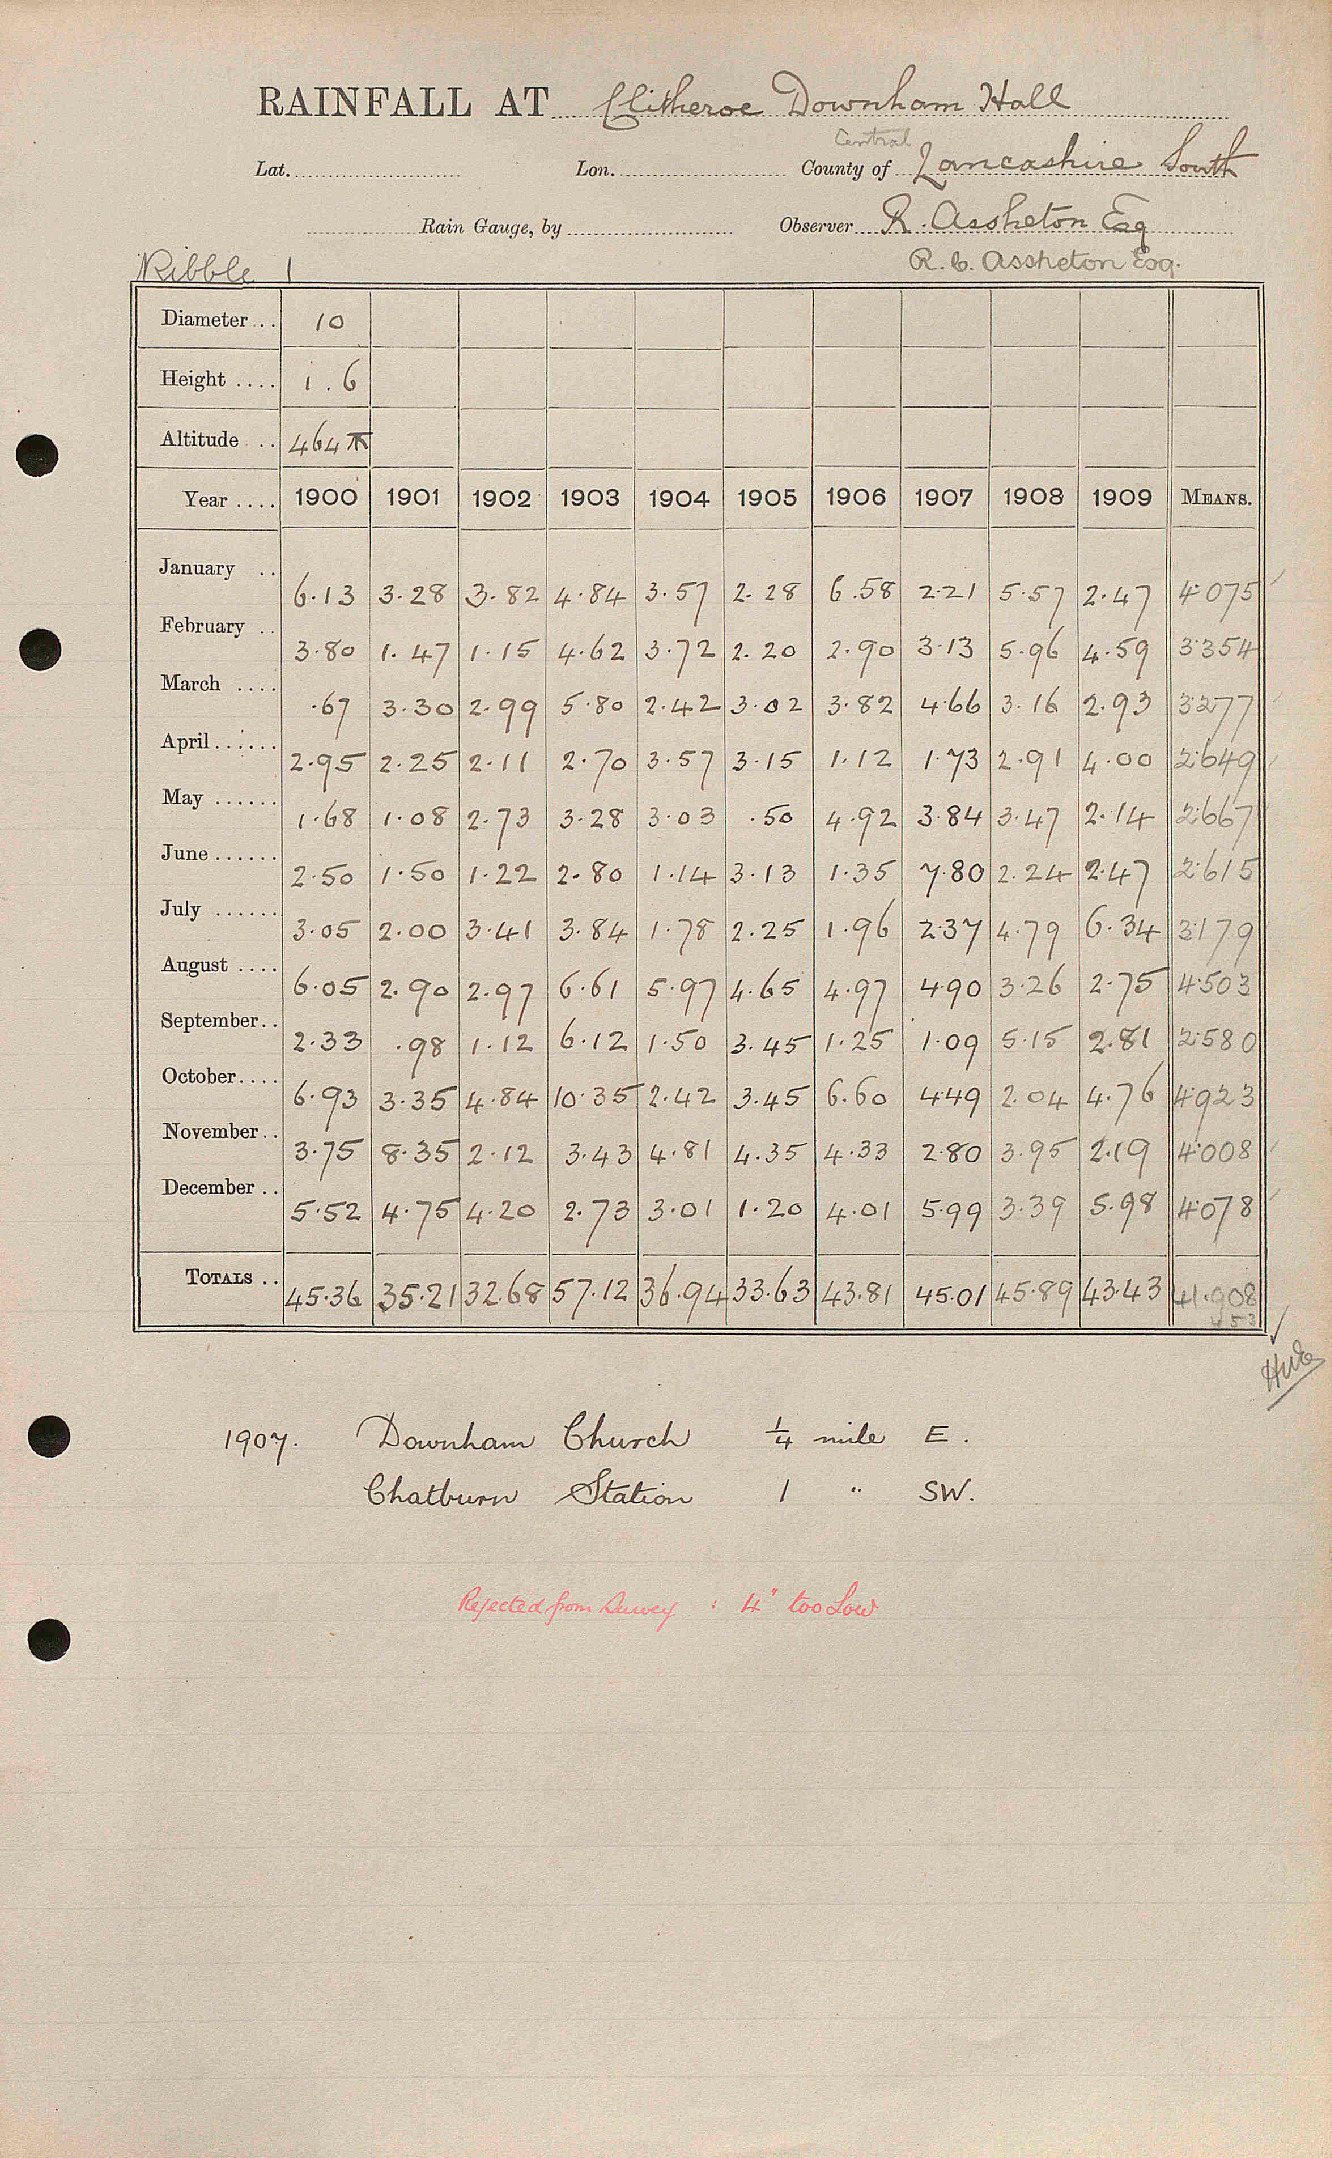 RAINFALL AT Clitheroe Downham Hall
Central
Lat. Lon. County of Lancashire South
Rain Gauge, by Observer R. Assheton Esq
Ribble 1 R. C. Assheton Esq.
Diameter... 10
Height .... 1.6
Altitude ... 464
Year .... 1900 1901 1902 1903 1904 1905 1906 1907 1908 1909 MEANS.
January .. 6.13 3.28 3.82 4.84 3.57 2.28 6.58 2.21 5.57 2.47 4.075
February .. 3.80 1.47 1.15 4.62 3.72 2.20 2.90 3.13 5.96 4.59 3.354
March .... .67 3.30 2.99 5.80 2.42 3.02 3.82 4.66 3.16 2.93 3.277
April...... 2.95 2.25 2.11 2.70 3.57 3.15 1.12 1.73 2.91 4.00 2.649
May ...... 1.68 1.08 2.73 3.28 3.03 .50 4.92 3.84 3.47 2.14 2.667
June...... 2.50 1.50 1.22 2.80 1.14 3.13 1.35 7.80 2.24 2.47 2.615
July ...... 3.05 2.00 3.41 3.84 1.78 2.25 1.96 2.37 4.79 6.34 3.179
August .... 6.05 2.90 2.97 6.61 5.97 4.65 4.97 4.90 3.26 2.75 4.503
September.. 2.33 .98 1.12 6.12 1.50 3.45 1.25 1.09 5.15 2.81 2.580
October.... 6.93 3.35 4.84 10.35 2.42 3.45 6.60 4.49 2.04 4.76 4.923
November.. 3.75 8.35 2.12 3.43 4.81 4.35 4.33 2.80 3.95 2.19 4.008
December .. 5.52 4.75 4.20 2.73 3.01 1.20 4.01 5.99 3.39 5.98 4.078
TOTALS .. 45.36 35.21 32.68 57.12 36.94 33.63 43.81 45.01 45.89 43.43 41.908
1907. Downham Church 1/4 mile E.
Chatburn Station 1 " SW.
Rejected from Survey : 4" too Low